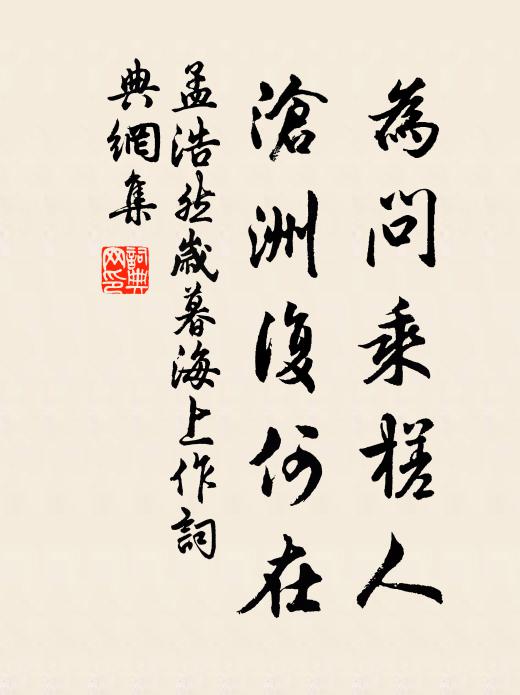 為問乘槎人
滄洲復何在
孟浩然歲暮海上作詞
典網集
詞典
網印